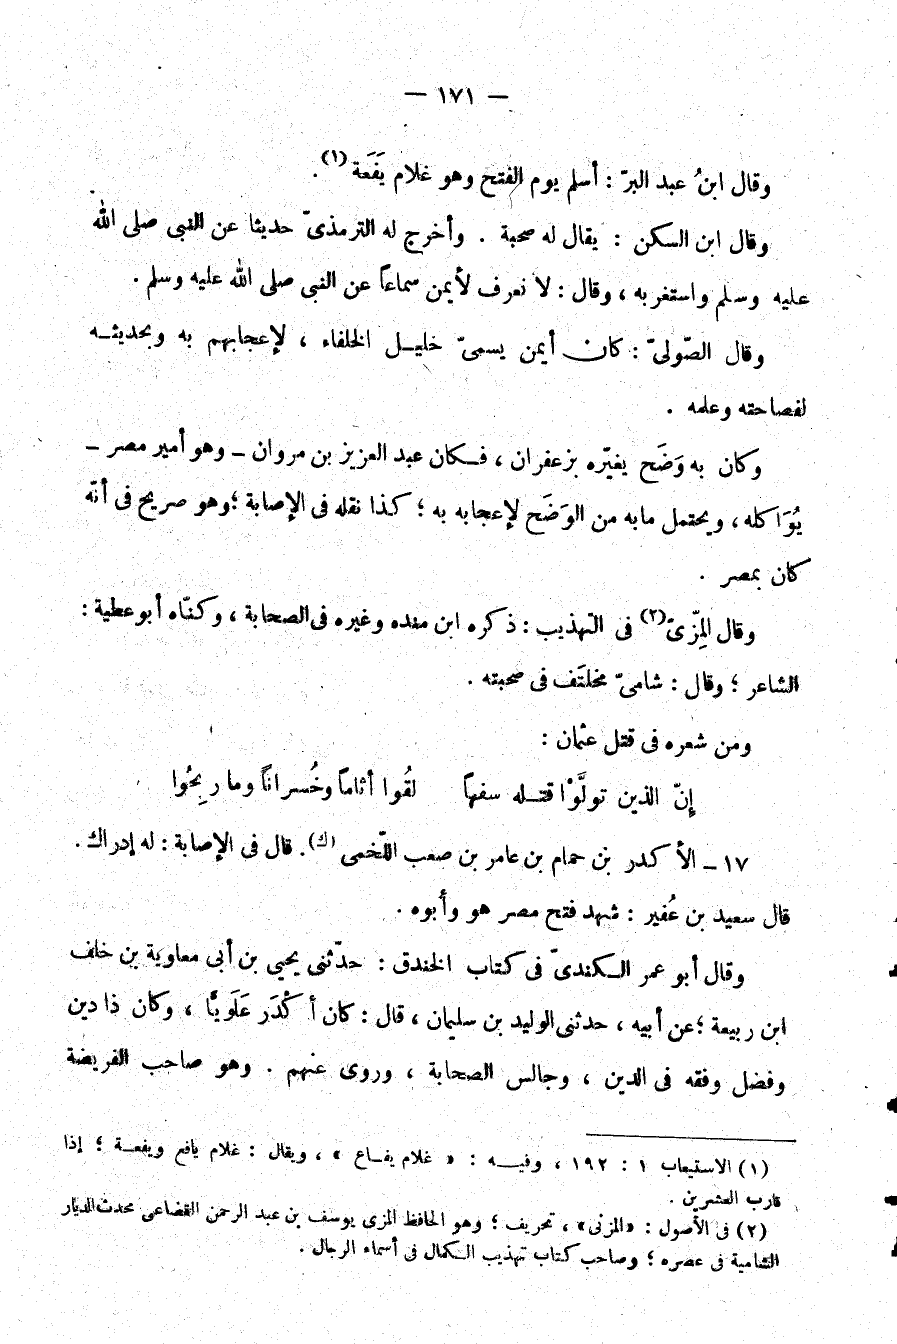 — ١٧١ —
وقال ابنُ عبد البرّ : أسلم يوم الفتح وهو غلام يَفَعَة (١) .
وقال ابن السكن : يقال له صحبة . وأخرج له الترمذىّ حديثا عن النبى صلى الله
عليه وسلم واستغربه ، وقال : لا نعرف لأيمن سماعاً عن النبى صلى الله عليه وسلم .
وقال الصّولىّ : كان أيمن يسمىّ خليل الخلفاء ، لإعجابهم به وبحديثه
لفصاحته وعلمه .
وكان به وَضَح يغيّره بزعفران ، فكان عبد العزيز بن مروان – وهو أمير مصر –
يُوَاكله ، ويحتمل مابه من الوَضَح لإعجابه به ؛ كذا نقله فى الإصابة ؛ وهو صريح فى أنّه
كان بمصر .
وقال المِزّىّ (٢) فى التهذيب : ذكره ابن منده وغيره فى الصحابة ، وكنّاه أبو عطية :
الشاعر ؛ وقال : شامىّ مختلَف فى صحبته .
ومن شعره فى قتل عثمان :
إنّ الذين تولَّوْا قتله سفهاً لقُوا أثاماً وخُسراناً وما ربِحُوا
١٧ – الأكدر بن حمام بن عامر بن صعب اللّخمى (ك) . قال فى الإصابة : له إدراك .
قال سعيد بن عُفير : شهد فتح مصر هو وأبوه .
وقال أبو عمر الكندىّ فى كتاب الخندق : حدّثنى يحيى بن أبى معاوية بن خلف
ابن ربيعة ؛ عن أبيه ، حدثنى الوليد بن سليمان ، قال : كان أكْدَر عَلَويًّا ، وكان ذا دين
وفضل وفقه فى الدين ، وجالس الصحابة ، وروى عنهم . وهو صاحب الفريضة
(١) الاستيعاب ١ : ١٩٢ ، وفيه : « غلام يفاع » ، ويقال : غلام يافع ويفعة ؛ إذا
قارب العشرين .
(٢) فى الأصول : « المزنى » ، تحريف ؛ وهو الحافظ المزى يوسف بن عبد الرحمن القضاعى محدث الديار
الشامية فى عصره ؛ وصاحب كتاب تهذيب الكمال فى أسماء الرجال .